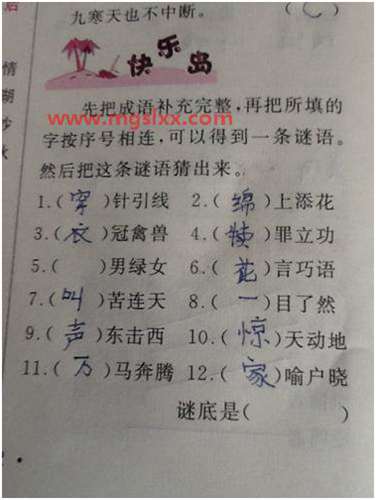 九寒天也不中断。 ( C )
快乐岛
先把成语补充完整,再把所填的
www.mgslxx.com
字按序号相连,可以得到一条谜语。
然后把这条谜语猜出来。
1.( 穿 )针引线 2.( 绵 )上添花
3.( 衣 )冠禽兽 4.( )罪立功
5.( )男绿女 6.( 花 )言巧语
7.( 叫 )苦连天 8.( 一 )目了然
9.( 声 )东击西 10.( 惊 )天动地
11.( 万 )马奔腾 12.( 家 )喻户晓
谜底是( )
情